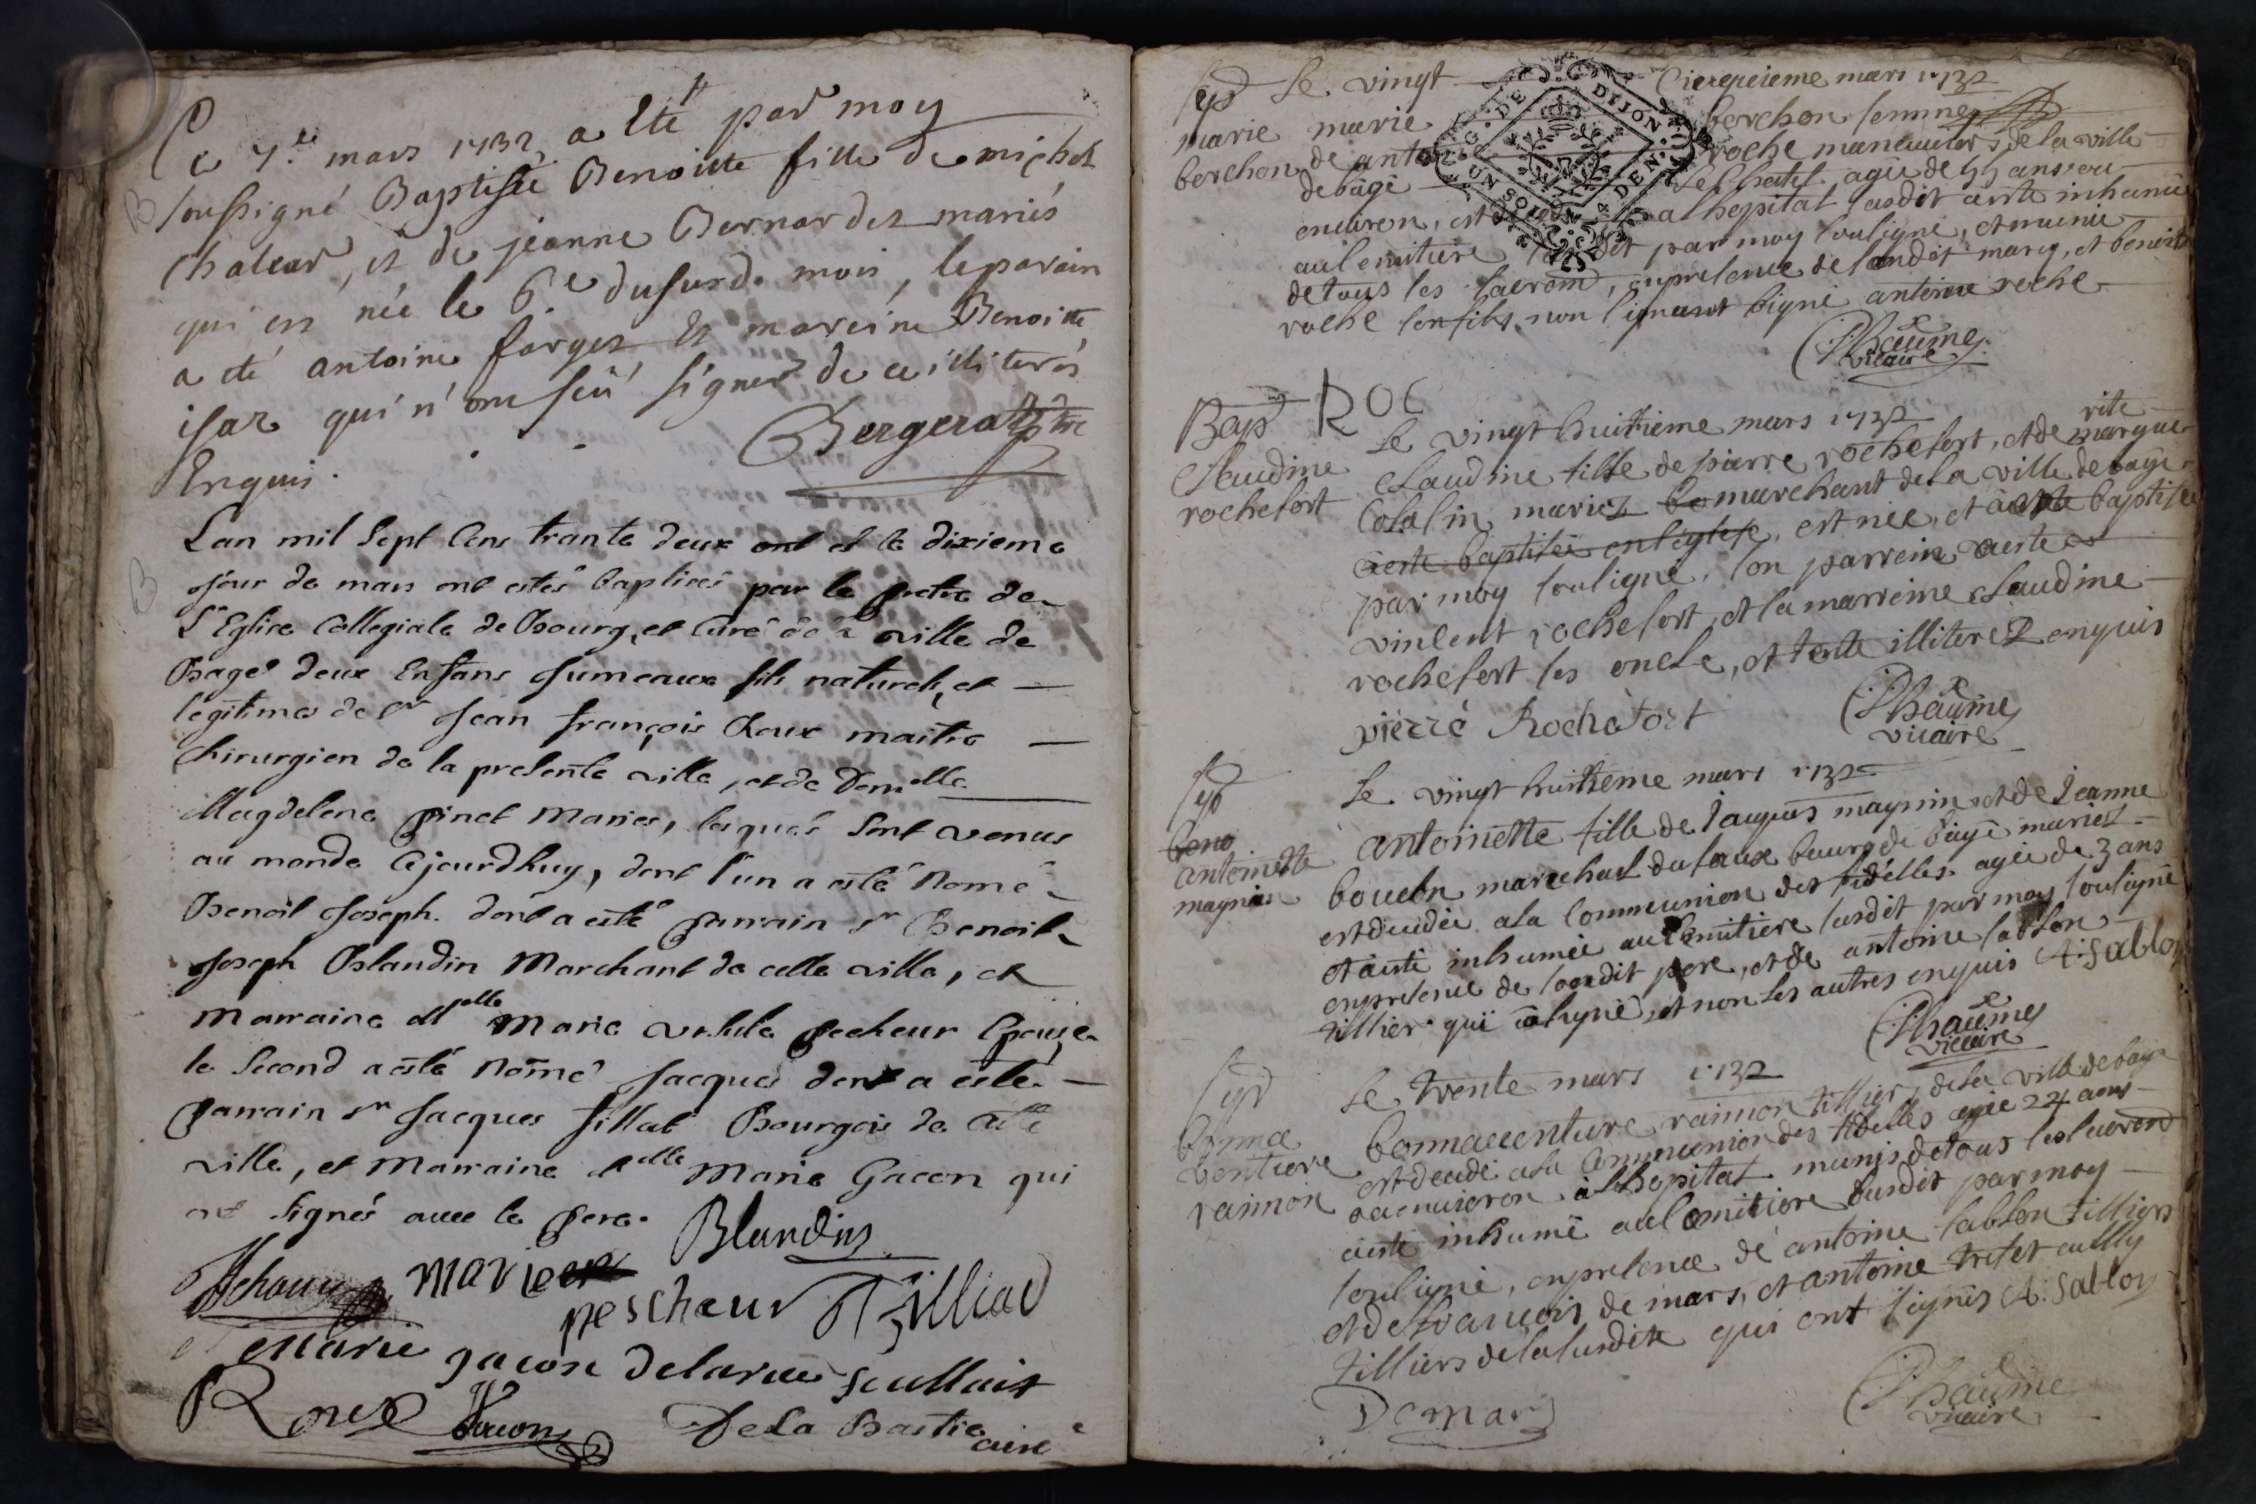 Ce 7.e mars 1732 a Eté par moy
soussigné Baptisée Benoitte fille de michel
Chalear, et de jeanne Bernardet mariés
qui est née le 6.e dususd. mois, le parain
a été antoine farget Et mareine Benoitte
isar qui n'ont seü signer de ce illiterés
Enquis.
Bergerat ptre
Lan mil Sept Cens trante deux ont et le dixieme
jour de mars ont estés baptisés par le pretre de
L'Eglise Collegiale de Bourg, et Curé de la ville de
Bagé deux Enfans jumeaux fils naturels et
legitimes de Sr Jean françois Roux maitre
Chirurgien de la presente ville, et de Demelle
Magdelene pinet Mariés, lesqués sont venus
au monde Cejourdhuy, dont l'un a esté Nomé
Benoit Joseph. dont a esté parrain sr Benoit
Joseph Blandin Marchant de cette ville, et
Marraine dlle Marie Pecheur Epouse
le Second a esté nõmé Jacques dont a esté
parrain sr Jacques fillat Bourgois de cette
ville, et Marraine dlle Marie Gacon qui
ont signés avec le pere.
Blandin
marieer
pescheur
filliat
Marie gacon Delarue
Roux gacon De La Bastie curé
Sep Le vingt Cinquieme mars 1732
marie marie berchon femme
berchon de antoine roche manauvre de la ville
de bagé Le Chatel. agée de 55 ans ou
environ, est a lhopital susdit aeste inhumée
au Cemitiere susdit par moy soussigné, et munie
de tous les sacrem, en presence de sondit mary, et benoit
roche son fils, non signé antoine roche
Phaume
vicaire
ROC
Bap Le vingt huitieme mars 1732
Claudine Claudine fille de pierre rochefort, et de margue
rite
rochefort Cosalin mariez bo marchant de la ville de bagé
aeste baptisée en leglise, est née, et aeste baptisée
par moy souligné, son parrein aeste
vincent rochefort, et la marreine Claudine
rochefort ses oncle, et tente illiterez enquis
pierré Rochefort
Phaume
vicaire
Sep Le vingt huitieme mars 1732
beno antoinette fille de Jaques magnin et de Jeanne
antoinette bouchu marechal du faux bourg de bagé mariez
magnin est decedée a la Communion des fidelles agée de 3 ans
et aeste inhumée au Cemitiere susdit par moy souligné
en presence de sondit pere, et de antoine sablon
tillier qui a signé, et non les autres enquis A: Sablon
Phaume
vicaire
Sep Le trente mars 1732
bonna bonnaventure raimon tillier de la ville de bagé
venture est decedé a la Communion des fidelles agée 24 ans
raimon ou environ a lhopital munis de tous les sacrem
aeste inhumé au Cemitiere susdit par moy
souligné, en presence de antoine sablon tilliers
et de francois de mars, et antoine
tilliers de la susdite qui ont signés A: Sablon
Demars
Phaume
vicaire
G. DE DIJON
UN SOL 4 DEN